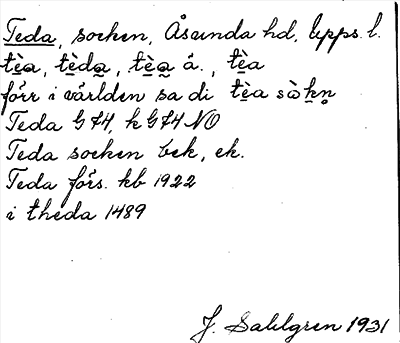 Teda, socken, Åsunda hd, Upps. l.
tèa, tèda, tèa å., tèa
förr i världen sa di tèa sòkn
Teda GK4, k GK4 NO
Teda socken bek, ek.
Teda förs. kb 1922
i theda 1489
J. Sahlgren 1931